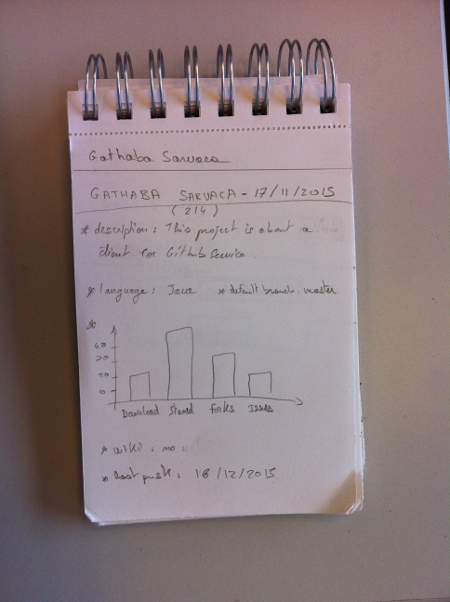 Gathaba Sarvaca
GATHABA SARVACA - 17/11/2015
(214)
* description: This project is about a
client for Github Service.
* language: Java * default branch: master
%
Download Stared Forks Issues
* wiki: no
* last push: 18/12/2015